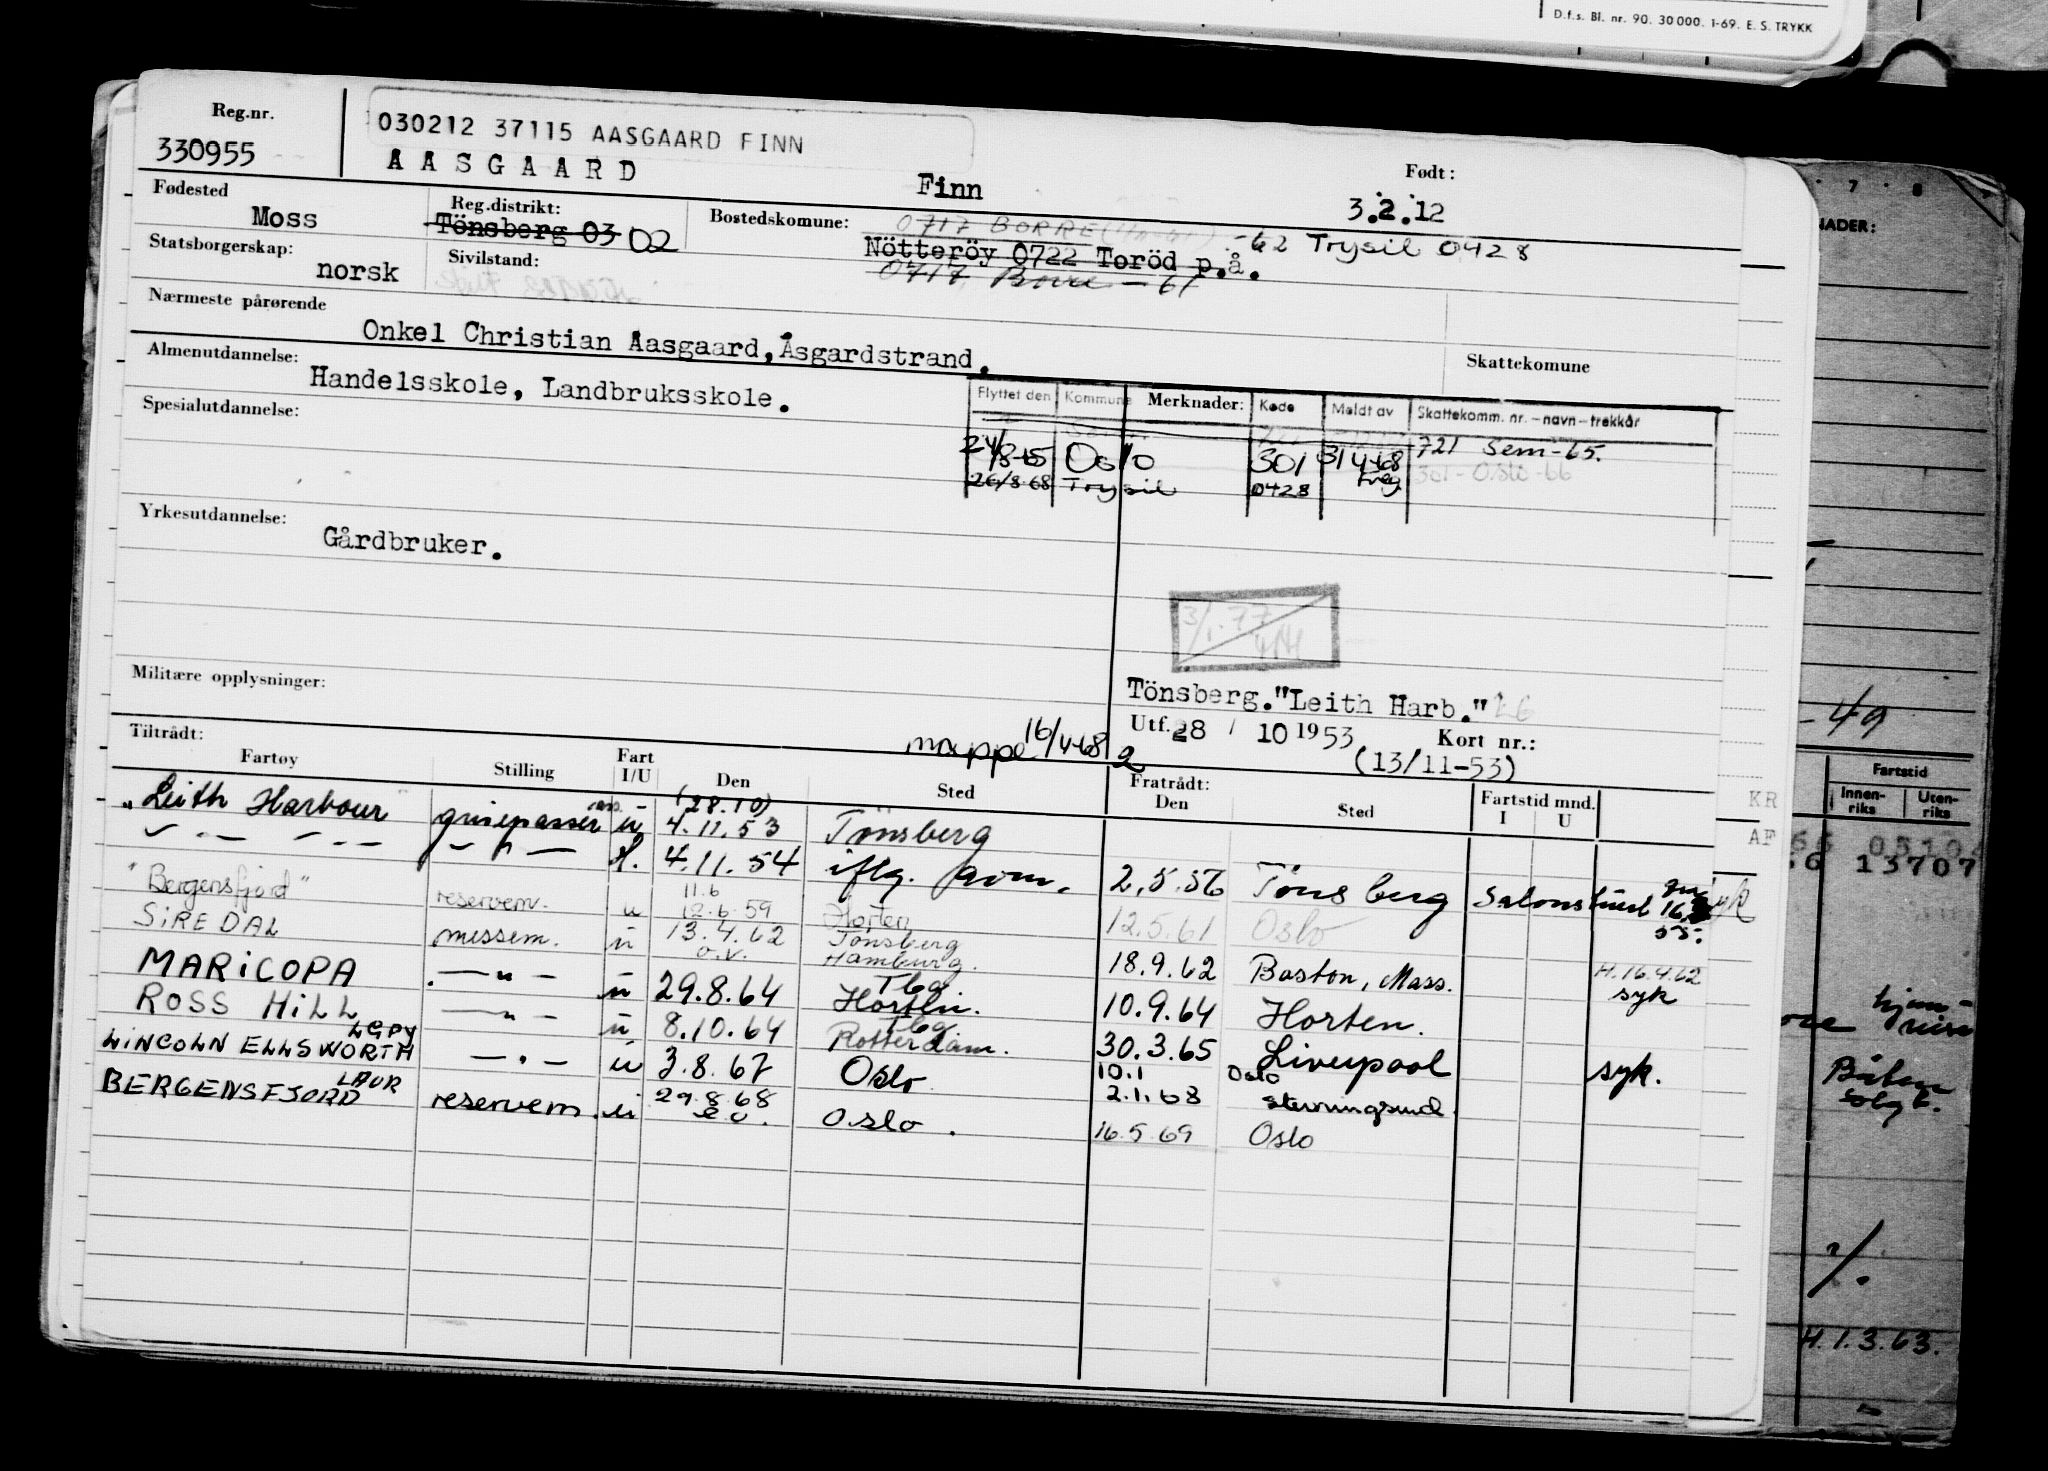 D.f.s. Bl. nr. 90. 30 000. 1-69. E. S. TRYKK
Reg.nr.
330955
030212 37115 AASGAARD FINN
AASGAARD
Finn
Født:
3.2.12
Fødested
Moss
Reg.distrikt:
Tönsberg 03 02
Bostedskomune:
0717 BORRE
Nötteröy 0722 Toröd p.å.
-62 Trysil 0428
0717 Borre - 61
Statsborgerskap:
norsk
Sivilstand:
Nærmeste pårørende
Onkel Christian Aasgaard, Åsgardstrand.
Skattekomune
Almenutdannelse:
Handelsskole, Landbruksskole.
Flyttet den Kommune Merknader: Kode Meldt av Skattekomm. nr. – navn – trekkår
721 Sem-65.
24/8-65 Oslo 301 31/4-68 301-Oslo-66
26/8-68 Trysil 0428
Spesialutdannelse:
Yrkesutdannelse:
Gårdbruker.
3/1.77
Militære opplysninger:
Tönsberg. "Leith Harb."
Utf. 28 / 10 1953 Kort nr.:
(13/11-53)
mappe 16/4-68 2
Tiltrådt:
Fartøy Stilling Fart I/U Den Sted Fratrådt: Den Sted Fartstid mnd. I U
"Leith Harbour" grisepasser u (28.10) 4.11.53 Tönsberg
4.11.54 iflg. 2.5.56 Tönsberg
"Bergensfjord" reservem. u 11.6 12.6.59 Horten 12.5.61 Oslo
SIREDAL messem. u 13.4.62 Tönsberg Hamburg. 18.9.62 Boston, Mass. H.16.4.62 syk
MARICOPA — " — u 29.8.64 Tbg. Horten. 10.9.64 Horten.
ROSS HILL — " — u 8.10.64 Tbg. Rotterdam. 30.3.65 Liverpool syk.
LINCOLN ELLSWORTH LGPY — " — u 3.8.67 Oslo 10.1 2.1.68 Oslo
BERGENSFJORD LAUR reservem. u 29.8.68 Oslo. 16.5.69 Oslo
7 8
NADER:
-49
Fartstid
Innen-riks Uten-riks
KR
AF
13707
H.1.3.63.